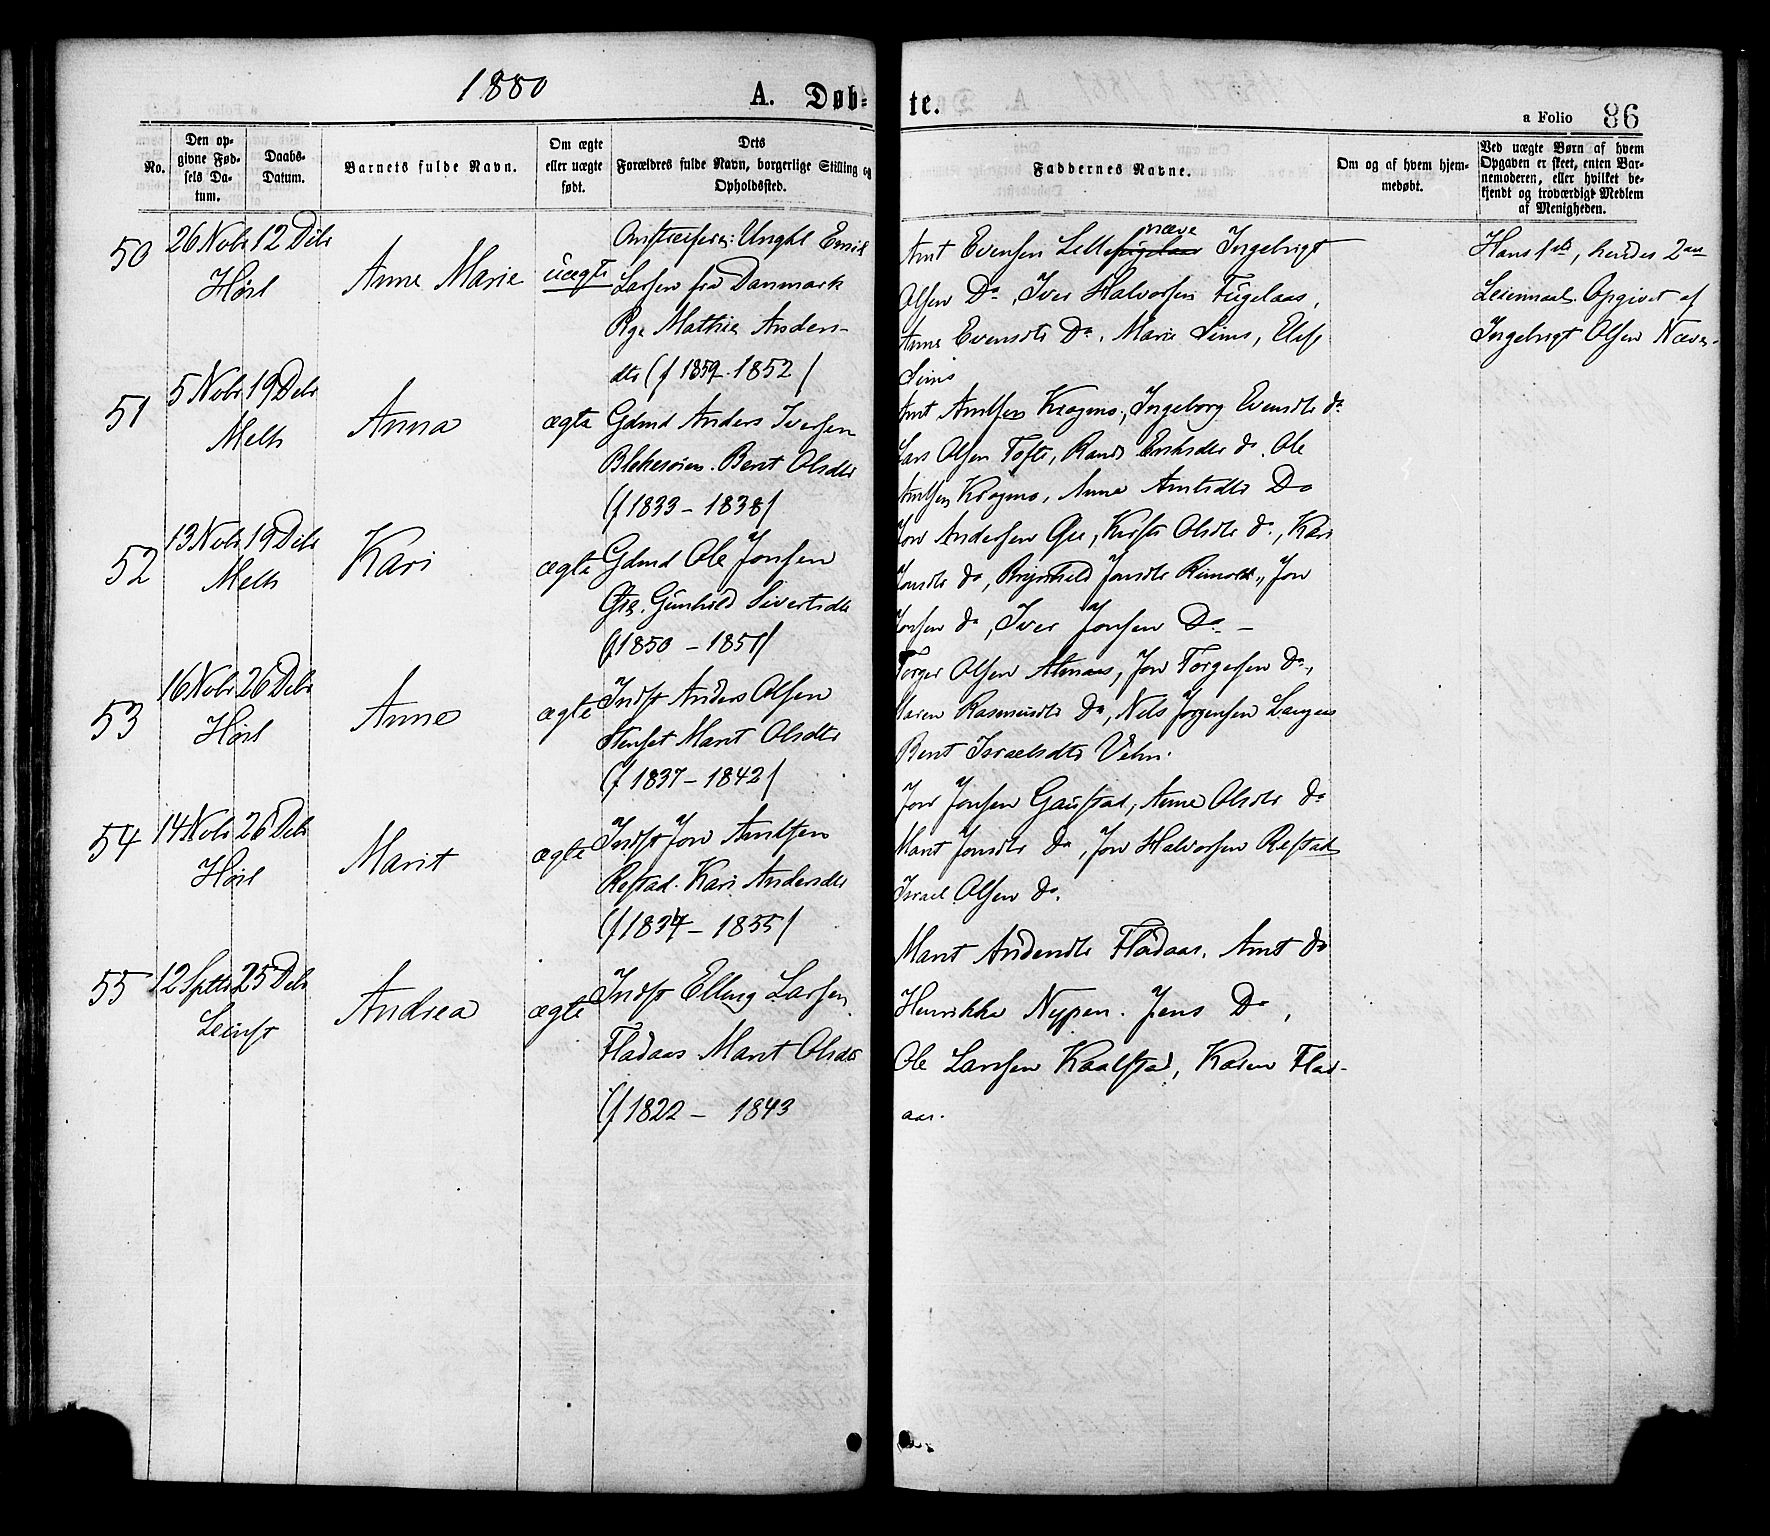 1880
A. Døb-
te.
a Folio 86
No.
Den op-
givne Fød-
sels Da-
tum.
Daabs-
Datum.
Barnets fulde Navn.
Om ægte
eller uægte
født.
Dets
Forældres fulde Navn, borgerlige Stilling og
Opholdssted.
Faddernes Navne.
Om og af hvem hjem-
medøbt.
Ved uægte Børn af hvem
Opgaven er skeet, enten Bar-
nemoderen, eller hvilket be-
kjendt og troværdigt Medlem
af Menigheden.
50
26 Nobr 12 Debr
Hørl
Anne Marie
uægte
Ungkl Emil
Larsen fra Danmark
Pge Mathia Anders-
dtr (f 1859. 1852)
Arnt Evensen Lille næve Ingebrigt
Olsen Do, Iver Halvorsen Fugelaas,
Anne Evensdtr Do, Marie Sims, Elise
Sims
Hans 1ste, hendes 2det
Leiermaal. Opgivet af
Ingebrigt Olsen Næve.
51
5 Nobr 19 Debr
Melh
Anna
ægte
Gdmd Anders Iversen
Blekesøien. Berit Olsdtr
(f 1833 - 1838)
Arnt Arntsen Krogmo, Ingeborg Evensdtr do
Lars Olsen Tofte, Randi do. Ole
Arntsen Krogmo, Anne Arntsdtr Do
52
13 Nobr 19 Debr
Melh
Kari
ægte
Gdmd Ole Jonsen
Gunhild Sivertsdtr
(f 1850 - 1851)
Jon Andersen Kirsti Olsdtr do, Kari
Jonsdtr do, Brynhild Jonsdtr Rimol, Jon
Jonsen do, Iver Jonsen Do -
53
16 Nobr 26 Debr
Hørl
Anne
ægte
Indst Anders Olsen
Stenset Marit Olsdtr
(f 1837 - 1842)
Torger Olsen Almaas, Jon Torgersen Do,
Maren Rasmusdtr Do, Nels Jørgensen
Berit Israelsdtr
54
14 Nobr 26 Debr
Hørl
Marit
ægte
Indst Jon Arntsen
Restad. Kari Andersdtr
(f 1837 - 1835)
Jon Jonsen Gaustad, Anne Olsdtr Do
Marit Jonsdtr Do, Jon Halvorsen Restad
Israel Olsen do.
55
12 Septbr 25 Debr
Leinst
Andrea
ægte
Indst Elling Larsen
Fladaas Marit Olsdtr
(f 1822 - 1843
Marit Andersdtr Fladaas. Arnt do
Henrikke Nypen. Jens Do,
Ole Larsen Kaalstad, Karen Flad-
aas.